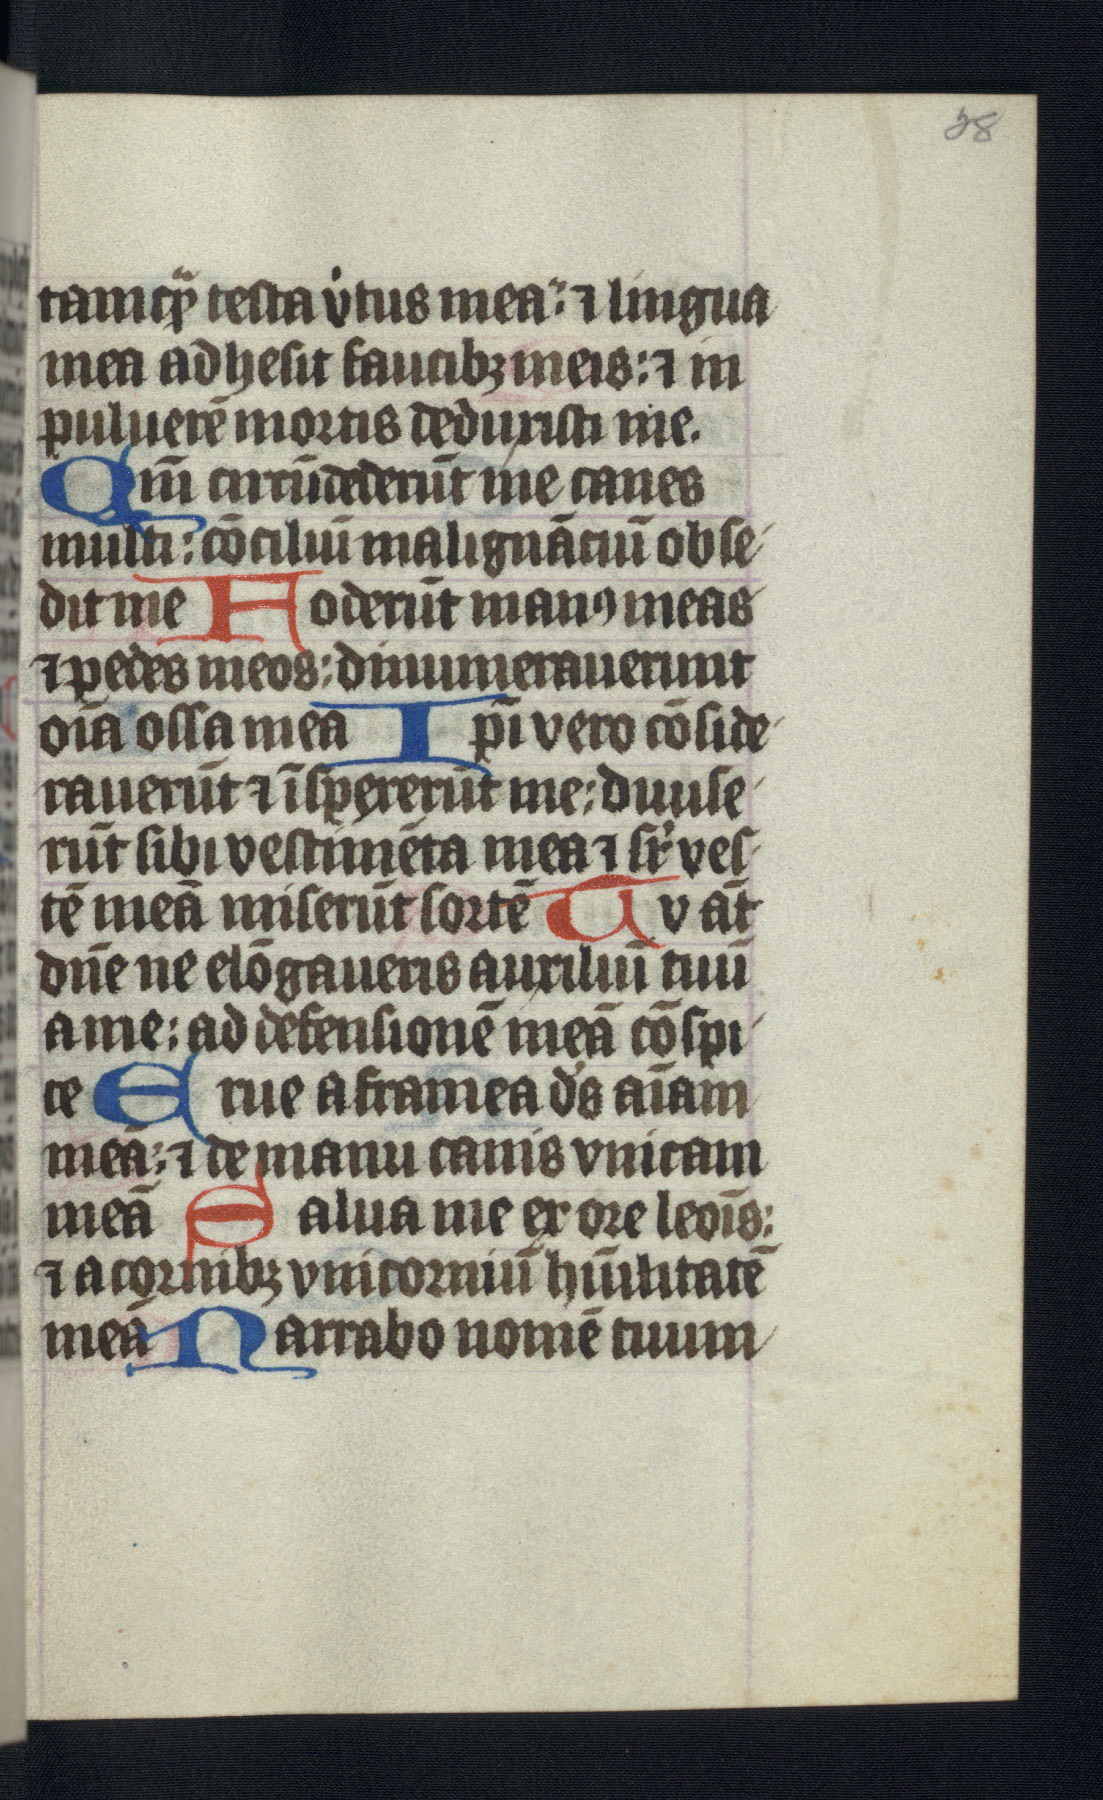 28
tamq̃ testa v̇tus mea: ⁊ lingua
mea adhesit faucibꝫ meis: ⁊ in
puluerē mortis deduxisti me.
Qm̄ circūdederūt me canes
multi: cōciliū malignāciū obse
dit me Foderūt manꝯ meas
⁊ pedes meos: dinumerauerunt
oīa ossa mea Ip̄i vero cōside
rauerūt ⁊ īspexerūt me: diuise
rūt sibi vestimēta mea ⁊ sr̄ ves
tē meā miserūt sortē Tv aūt
dn̄e ne elōgaueris auxiliū tuū
a me: ad defensionē meā cōspi
ce Erue a framea d̄s aīam
meā: ⁊ de manu canis vnicam
meā Salua me ex ore leoīs:
⁊ a cornibꝫ vnicorniū hūilitatē
meā Narrabo nomē tuum